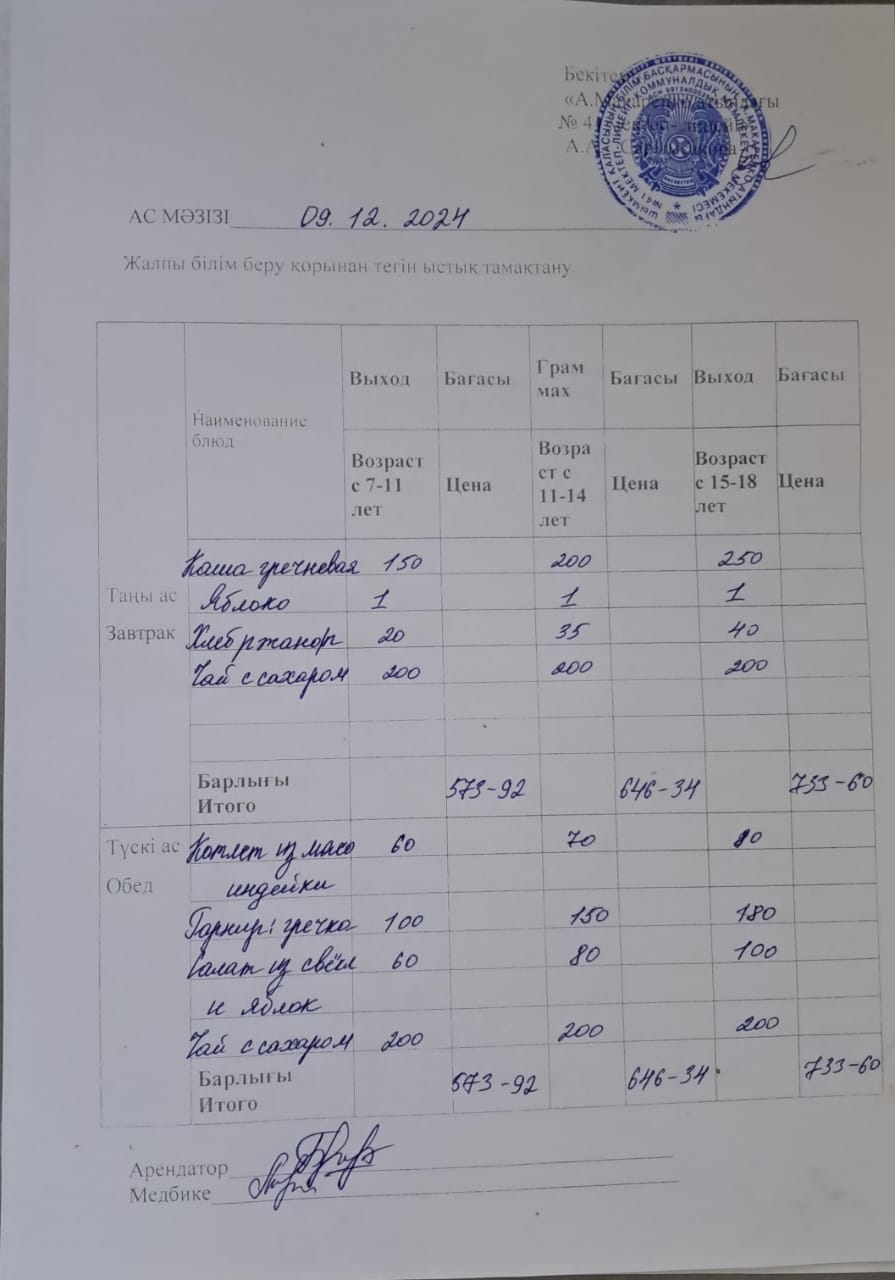 Бекітемін
«А.Макаренко атындағы
№ 41 мектеп-лицейі
А.А.
АС МӘЗІЗІ 09. 12. 2024
Жалпы білім беру қорынан тегін ыстық тамақтану
Наименование блюд Выход Бағасы Грам мах Бағасы Выход Бағасы
Возраст с 7-11 лет Цена Возра ст с 11-14 лет Цена Возраст с 15-18 лет Цена
Таңы ас
Завтрак
Каша гречневая 150 200 250
Яблоко 1 1 1
Хлеб ржаной 20 35 40
Чай с сахаром 200 200 200
Барлығы
Итого 573-92 646-34 733-60
Түскі ас
Обед
Котлет из мясо 60 70 80
индейки
Гарнир: гречка 100 150 180
Салат из свёкл 60 80 100
и яблок
Чай с сахаром 200 200 200
Барлығы
Итого 573-92 646-34 733-60
Арендатор
Медбике